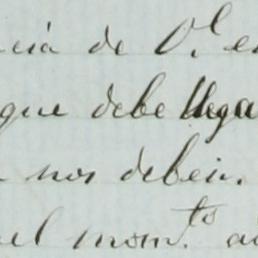 cia de V. e
que debe llega
nos deben.
el mom.to a